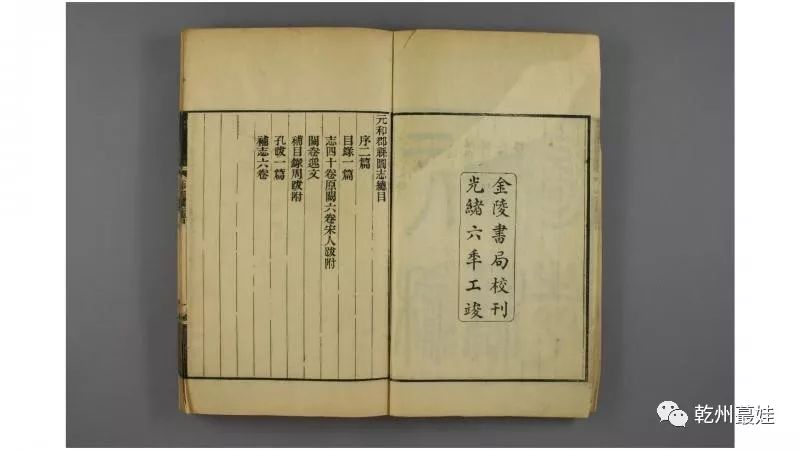 金陵書局校刊
光緒六秊工竣
元和郡縣圖志總目
序二篇
目錄一篇
志四十卷原闕六卷宋人跋附
闕卷逸文
補目錄周跋附
孔跋一篇
補志六卷
乾州蕞娃